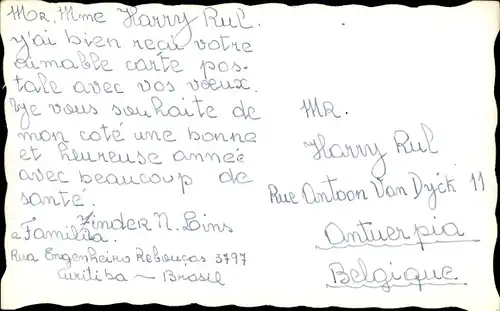 Mr, Mme Harry Rul.
y'ai bien reçu votre
aimable carte pos-
tale avec vos vœux.
Je vous souhaite de
mon coté une bonne
et heureuse année
avec beaucoup de
santé.
Zinder N. Lins
e Família.
Rua Engenheiro Rebouças 3797
Curitiba - Brasil
MR.
Harry Rul
Rue Antoon Van Dÿck 11
Antuerpia
Belgique